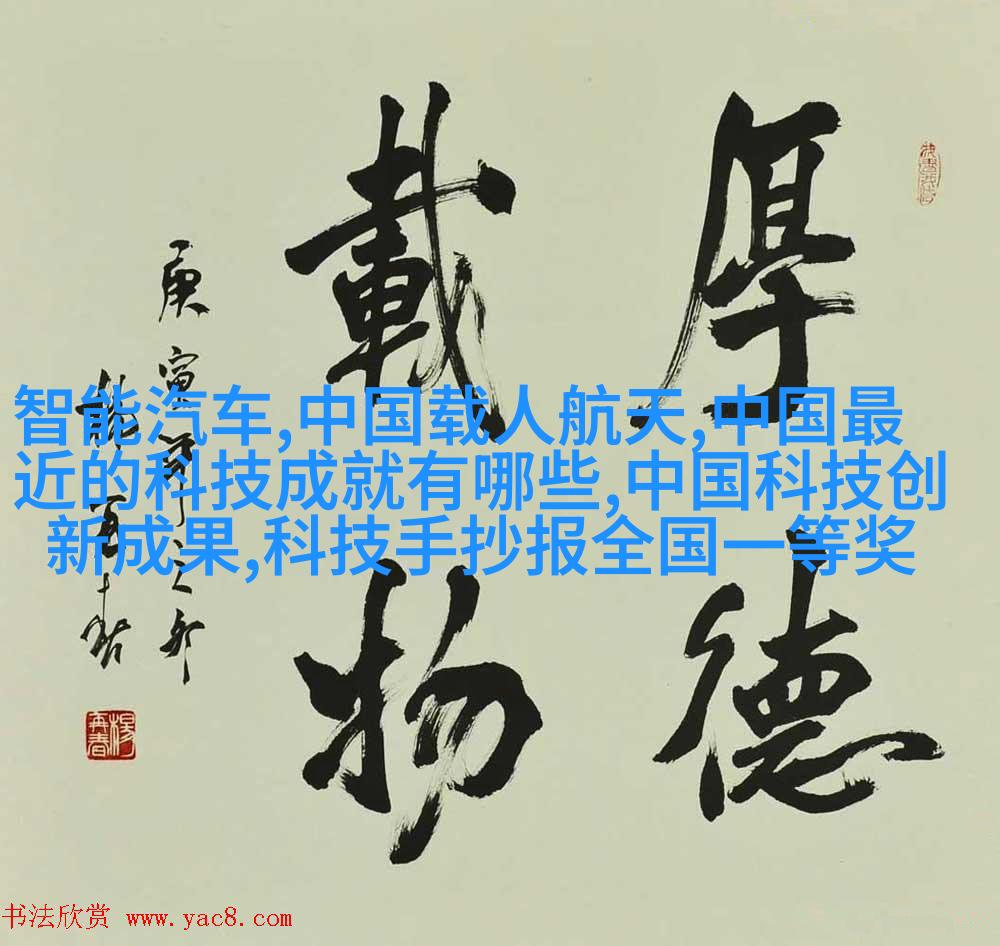 厚德
載物
庚寅
楊再春
楊再春
智能汽车,中国载人航天,中国最
近的科技成就有哪些,中国科技创
新成果,科技手抄报全国一等奖
书法欣赏 www.yac8.com